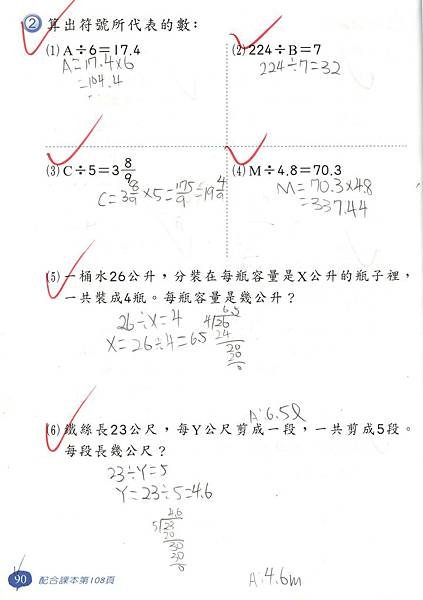 2 算出符號所代表的數：
(1) A÷6＝17.4
A=17.4×6
=104.4
(2) 224÷B＝7
224÷7=32
(3) C÷5＝3 8/9
C=3 8/9 ×5=175/9=19 4/9
(4) M÷4.8＝70.3
M=70.3×4.8
=337.44
(5) 一桶水26公升，分裝在每瓶容量是X公升的瓶子裡，
一共裝成4瓶。每瓶容量是幾公升？
26÷X=4
X=26÷4=6.5
6.5
4 26
24
20
20
0
A:6.5l
(6) 鐵絲長23公尺，每Y公尺剪成一段，一共剪成5段。
每段長幾公尺？
23÷Y=5
Y=23÷5=4.6
4.6
5 23
20
30
30
0
A:4.6m
90 配合課本第108頁